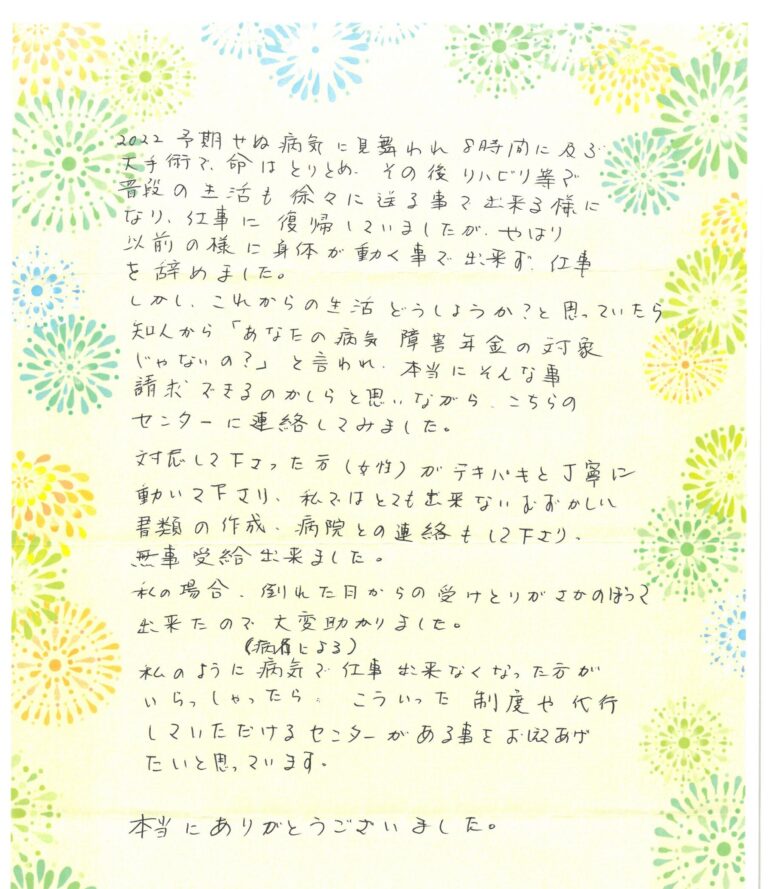 2022 予期せぬ病気に見舞われ 8時間に及ぶ
大手術で、命はとりとめ、その後リハビリ等で
普段の生活も徐々に送る事で出来る様に
なり、仕事に復帰していましたが、やはり
以前の様に身体が動く事で出来ず、仕事
を辞めました。
しかし、これからの生活どうしようか?と思っていたら
知人から「あなたの病気 障害年金の対象
じゃないの?」と言われ、本当にそんな事
請求できるのかしらと思いながら、こちらの
センターに連絡してみました。
対応して下さった方(女性)がテキパキと丁寧に
動いて下さり、私ではとても出来ないむずかしい
書類の作成、病院との連絡もして下さり、
無事受給出来ました。
私の場合、倒れた日からの受けとりがさかのぼって
出来たので大変助かりました。
(病名による)
私のように病気で仕事出来なくなった方が
いらっしゃったら、こういった制度や代行
していただけるセンターがある事を お伝えあげ
たいと思っています。
本当にありがとうございました。